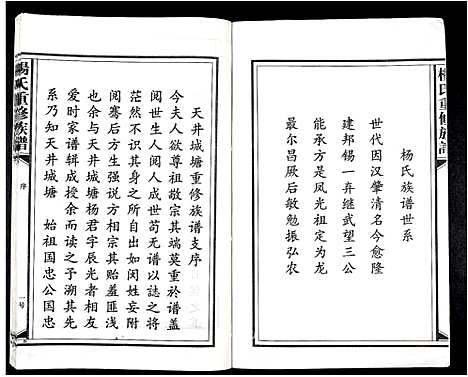 楊氏重修族譜
杨氏族譜世系
世代因汉肇清名今愈隆
建邦锡一弃继武望三公
能承方是凤光祖定为龙
最尔昌厥后敏勉振弘农
天井城塘重修族譜支序
今夫人欲尊祖敬宗其端莫重於譜盖
阅世生人阅人成世苟无谱以誌之将
茫然不识其身之所自出如闵姓妄附
阅骞后方生强说方相宗其贻羞匪浅
也余与天井城塘杨君宇辰光者相友
爱时家谱辑成授余而读之于溯其先
系乃知天井城塘 始祖国忠公国忠
楊氏重修族譜
序
一号